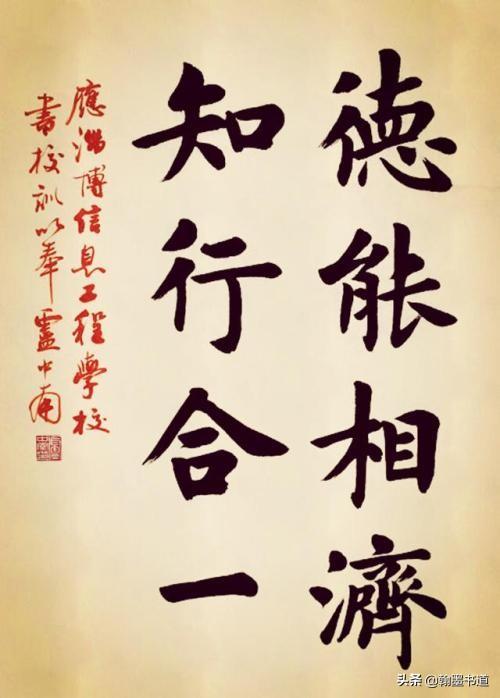 德能相濟
知行合一
應淄博信息工程學校
書校訓以奉盧中南
头条@翰墨书道